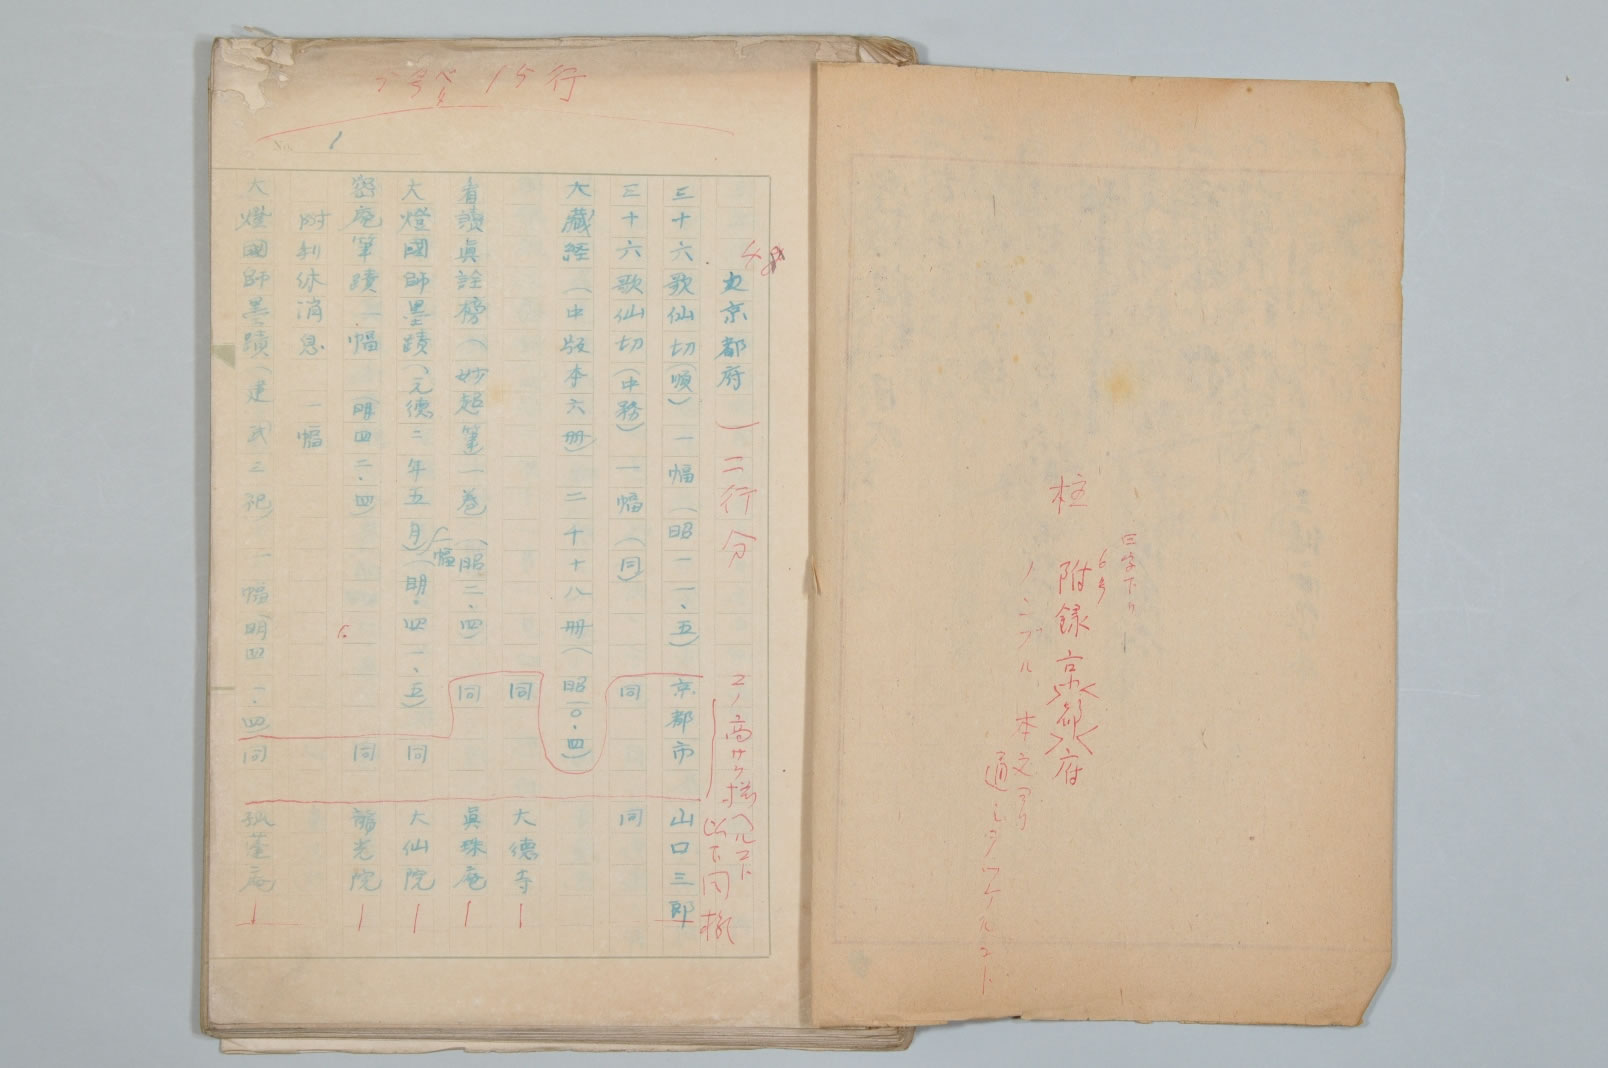 柱
四字下り
6号
附録 京都府
ノンブル 本文ヨリ
通シヲツケルコト
5号 15行
No. 1
48
京都府) 二行分
三十六歌仙切(順) 一幅(昭一一、五) 京都市 山口三郎
三十六歌仙切(中務) 一幅(同) 同 同
コノ高サヲ揃ヘルコト
以下同様
大藏経(中版本六册) 二千十八册(昭一〇、四)
同 大德寺
看讀眞詮榜(妙超筆一巻)(昭二、四) 同 眞珠庵
大燈國師墨蹟(元德二年五月)一幅(明・四一、五) 同 大仙院
密庵筆蹟一幅(明四二、四) 同 龍光院
附利休消息 一幅
大燈國師墨蹟(建武三祀) 一幅(明四一、四) 同 孤篷庵